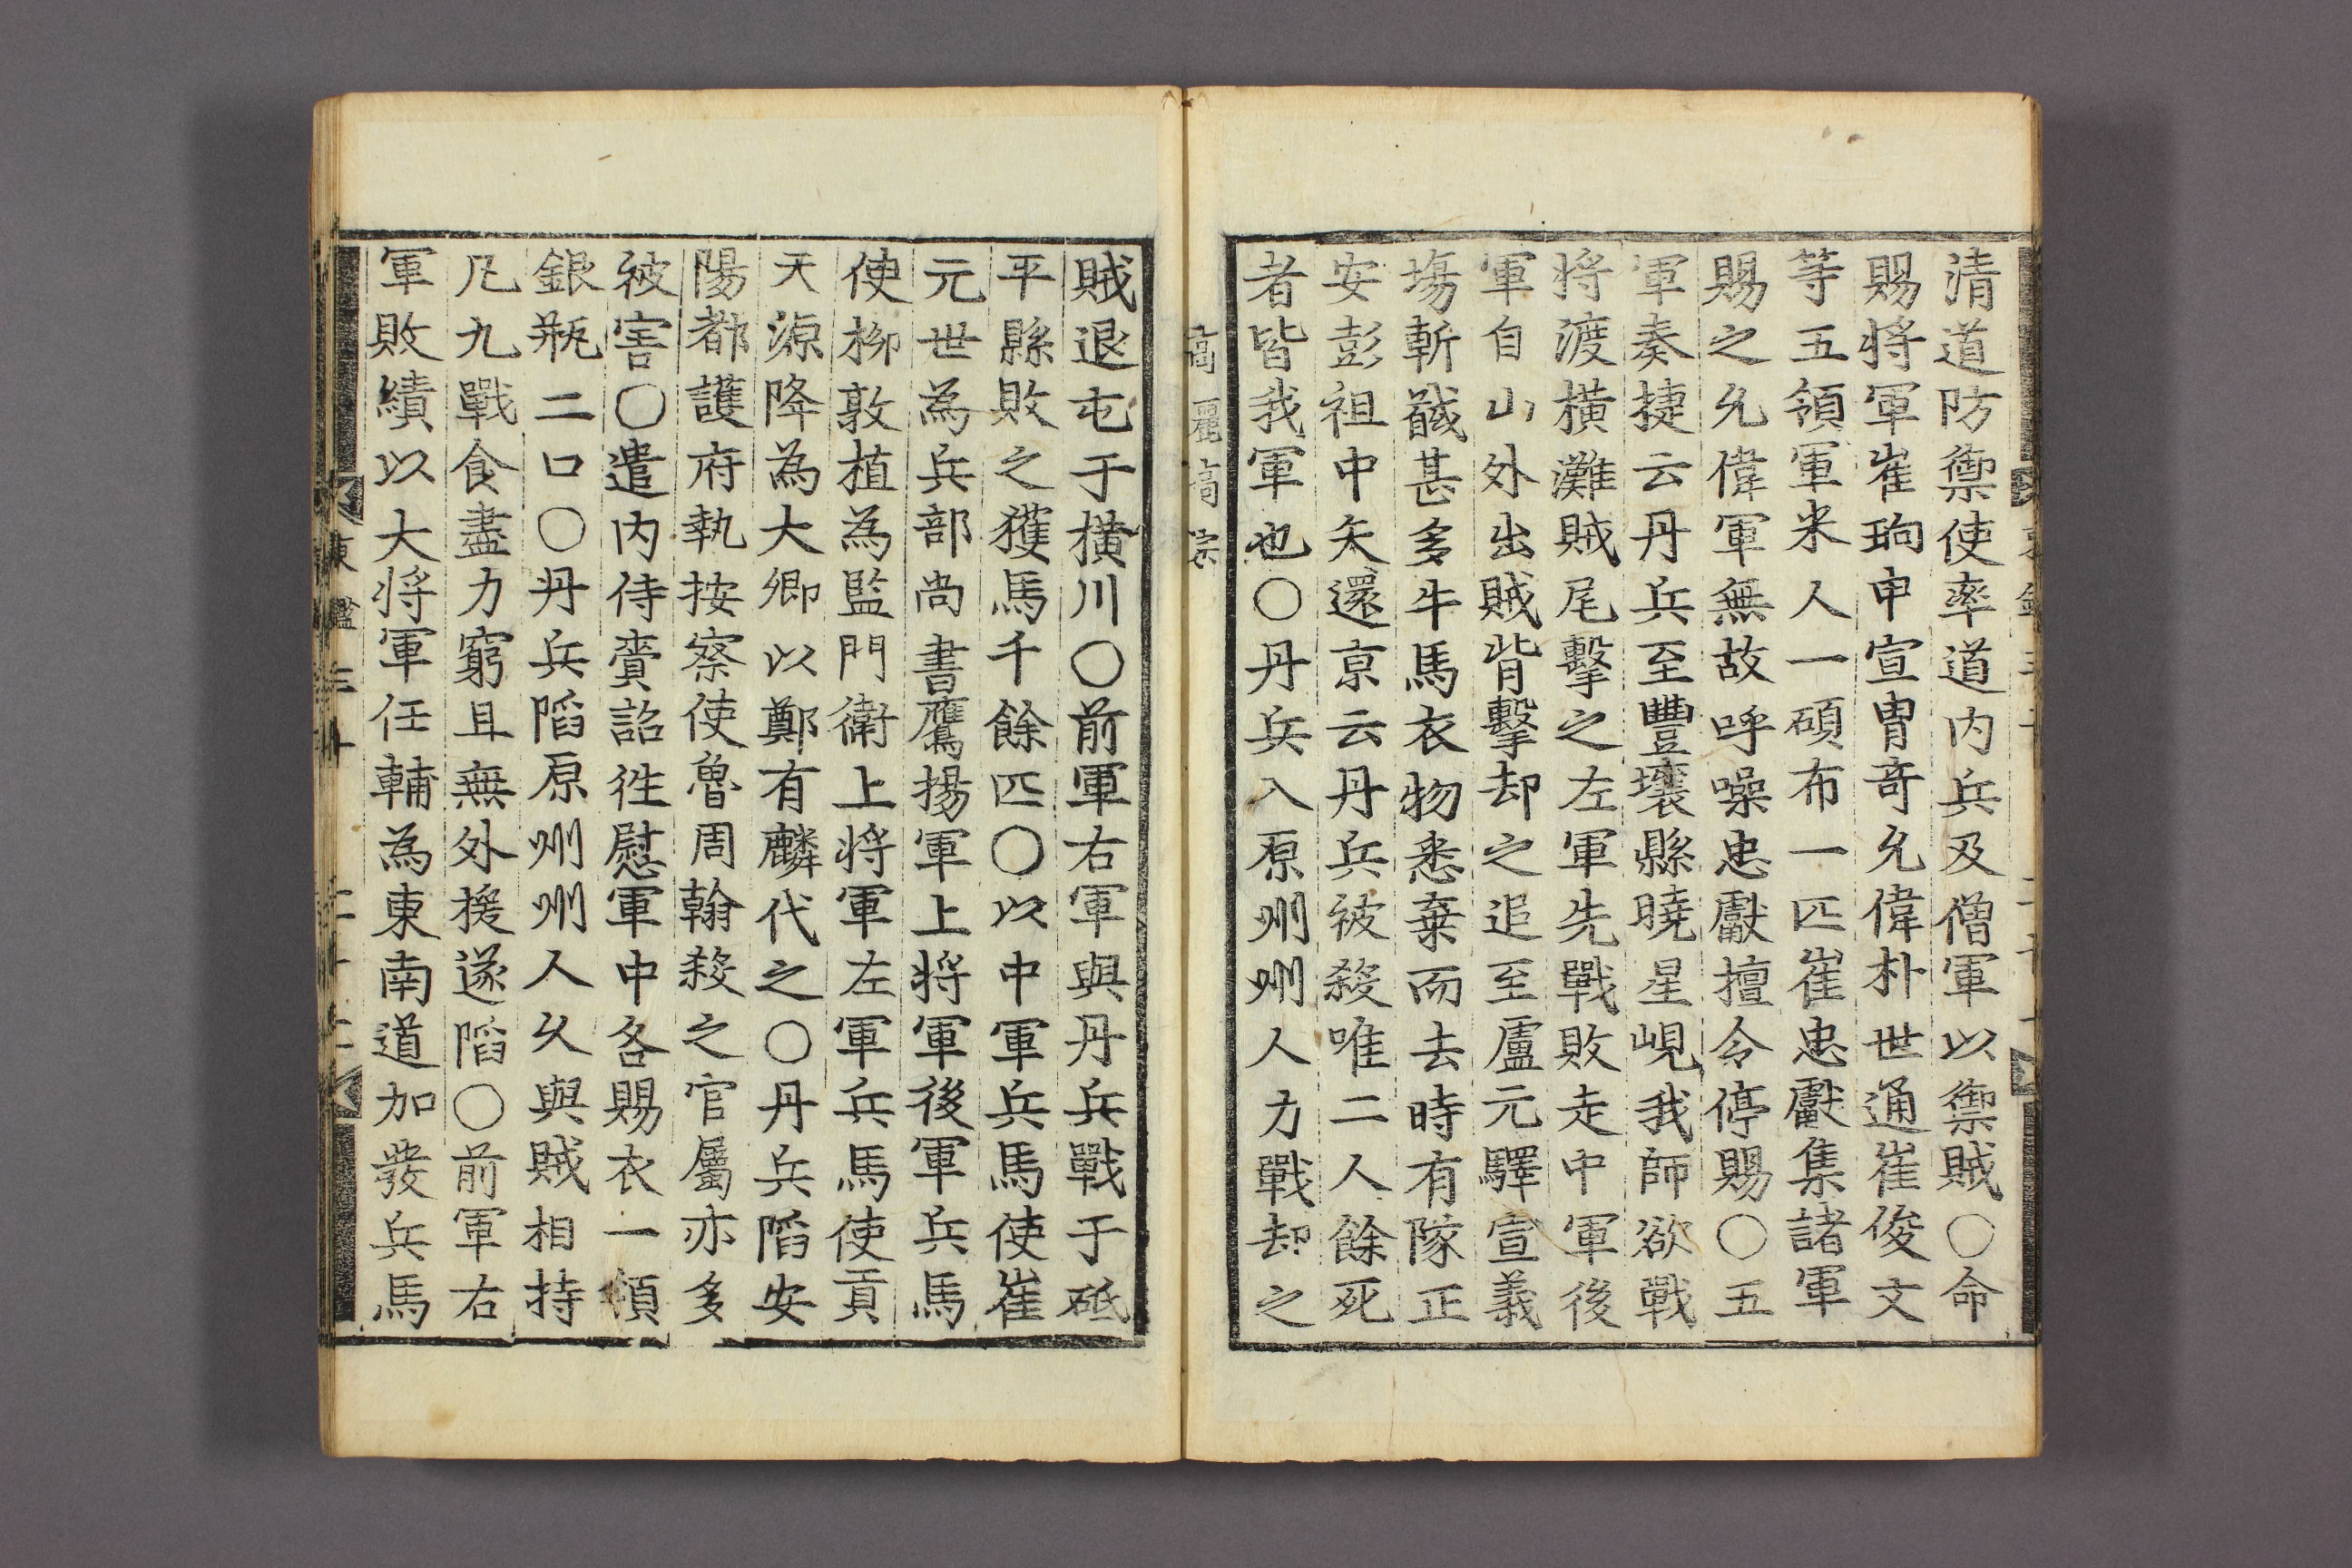 清道防禦使率道内兵及僧軍以禦賊○命
賜將軍崔珣申宣胄奇允偉朴世通崔俊文
等五領軍米人一碩布一匹崔忠獻集諸軍
賜之允偉軍無故呼噪忠獻擅令停賜○五
軍奏捷云丹兵至豐壤縣曉星峴我師欲戰
將渡橫灘賊尾擊之左軍先戰敗走中軍後
軍自山外出賊背擊却之追至盧元驛宣義
塲斬馘甚多牛馬衣物悉棄而去時有隊正
安彭祖中矢還京云丹兵被殺唯二人餘死
者皆我軍也○丹兵入原州州人力戰却之
高麗高宗
賊退屯于橫川○前軍右軍與丹兵戰于砥
平縣敗之獲馬千餘匹○以中軍兵馬使崔
元世為兵部尚書鷹揚軍上將軍後軍兵馬
使柳敦植為監門衛上將軍左軍兵馬使貢
天源降為大卿以鄭有麟代之○丹兵陷安
陽都護府執按察使魯周翰殺之官屬亦多
被害○遣内侍賫詔徃慰軍中各賜衣一領
銀瓶二口○丹兵陷原州州人乆與賊相持
凡九戰食盡力窮且無外援遂陷○前軍右
軍敗績以大將軍任輔為東南道加發兵馬
東鑑三十